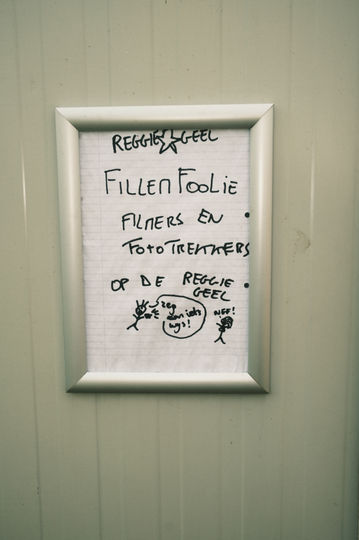 REGGIE GEEL
FILLEN FOOLIE
FILMERS EN
FOTOTREKKERS
OP DE REGGIE
GEEL
zeg
een iets
wijs!
NEE!